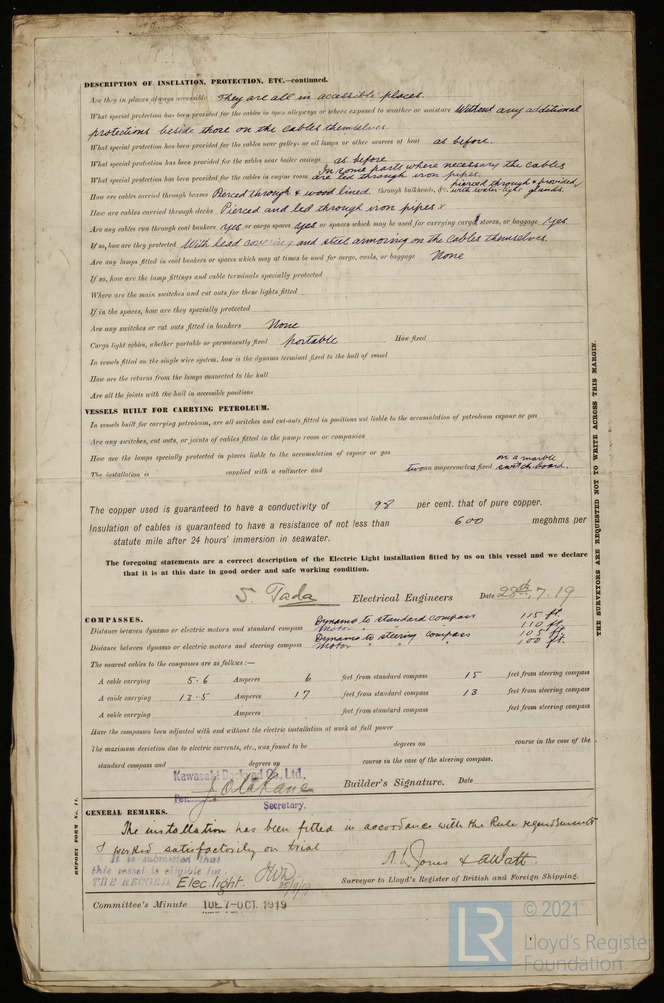 DESCRIPTION OF INSULATION, PROTECTION, ETC.—continued.
Are they in places always accessible They are all in accessible places.
What special protection has been provided for the cables in open alleyways or where exposed to weather or moisture Without any additional
protections beside those on the cables themselves.
What special protection has been provided for the cables near galleys or oil lamps or other sources of heat as before.
What special protection has been provided for the cables near boiler casings as before
What special protection has been provided for the cables in engine room In some parts where necessary the cables
are led through iron pipes.
How are cables carried through beams Pierced through & wood lined. through bulkheads, &c. pierced through & provided
with water-tight glands.
How are cables carried through decks Pierced and led through iron pipes
Are any cables run through coal bunkers yes or cargo spaces yes or spaces which may be used for carrying cargo, stores, or baggage yes
If so, how are they protected With lead covering and steel armoring on the cables themselves
Are any lamps fitted in coal bunkers or spaces which may at times be used for cargo, coals, or baggage None
If so, how are the lamp fittings and cable terminals specially protected
Where are the main switches and cut outs for these lights fitted
If in the spaces, how are they specially protected
Are any switches or cut outs fitted in bunkers None
Cargo light cables, whether portable or permanently fixed portable How fixed
In vessels fitted on the single wire system, how is the dynamo terminal fixed to the hull of vessel
How are the returns from the lamps connected to the hull
Are all the joints with the hull in accessible positions
VESSELS BUILT FOR CARRYING PETROLEUM.
In vessels built for carrying petroleum, are all switches and cut-outs fitted in positions not liable to the accumulation of petroleum vapour or gas
Are any switches, cut outs, or joints of cables fitted in the pump room or companion
How are the lamps specially protected in places liable to the accumulation of vapour or gas
The installation is supplied with a voltmeter and two an amperemeter, fixed on a marble
switch board.
The copper used is guaranteed to have a conductivity of 98 per cent. that of pure copper.
Insulation of cables is guaranteed to have a resistance of not less than 600 megohms per
statute mile after 24 hours' immersion in seawater.
The foregoing statements are a correct description of the Electric Light installation fitted by us on this vessel and we declare
that it is at this date in good order and safe working condition.
S. Tada Electrical Engineers Date 28th. 7. 19
COMPASSES.
Distance between dynamo or electric motors and standard compass Dynamo to standard compass 115 ft
Motor " " " 110 ft.
Distance between dynamo or electric motors and steering compass Dynamo to steering compass 105 ft
Motor " " " 100 ft.
The nearest cables to the compasses are as follows:—
A cable carrying 5.6 Amperes 6 feet from standard compass 15 feet from steering compass
A cable carrying 13.5 Amperes 17 feet from standard compass 13 feet from steering compass
A cable carrying Amperes feet from standard compass feet from steering compass
Have the compasses been adjusted with and without the electric installation at work at full power
The maximum deviation due to electric currents, etc., was found to be degrees on course in the case of the
standard compass and degrees on course in the case of the steering compass.
Kawasaki Dockyard Co., Ltd.,
Builder's Signature. Date
Secretary.
GENERAL REMARKS.
The installation has been fitted in accordance with the Rule requirements
& worked satisfactorily on trial
It is submitted that
this vessel is eligible for
THE RECORD Elec. light.
A. L. Jones & A Watt
Surveyor to Lloyd's Register of British and Foreign Shipping.
Committee's Minute TUE 7-OCT. 1919
THE SURVEYORS ARE REQUESTED NOT TO WRITE ACROSS THIS MARGIN.
© 2021
LR Lloyd's Register
Foundation